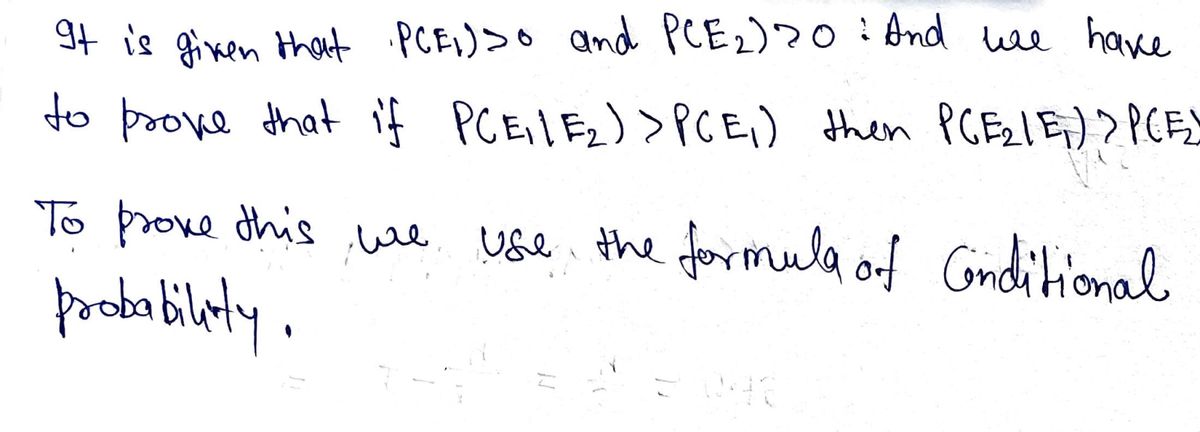 It is given that P(E₁)>0 and P(E₂)>0 : And we have
to prove that if P(E₁|E₂) > P(E₁) then P(E₂|E₁) > P(E₂)
To prove this we use the formula of Conditional
probability.